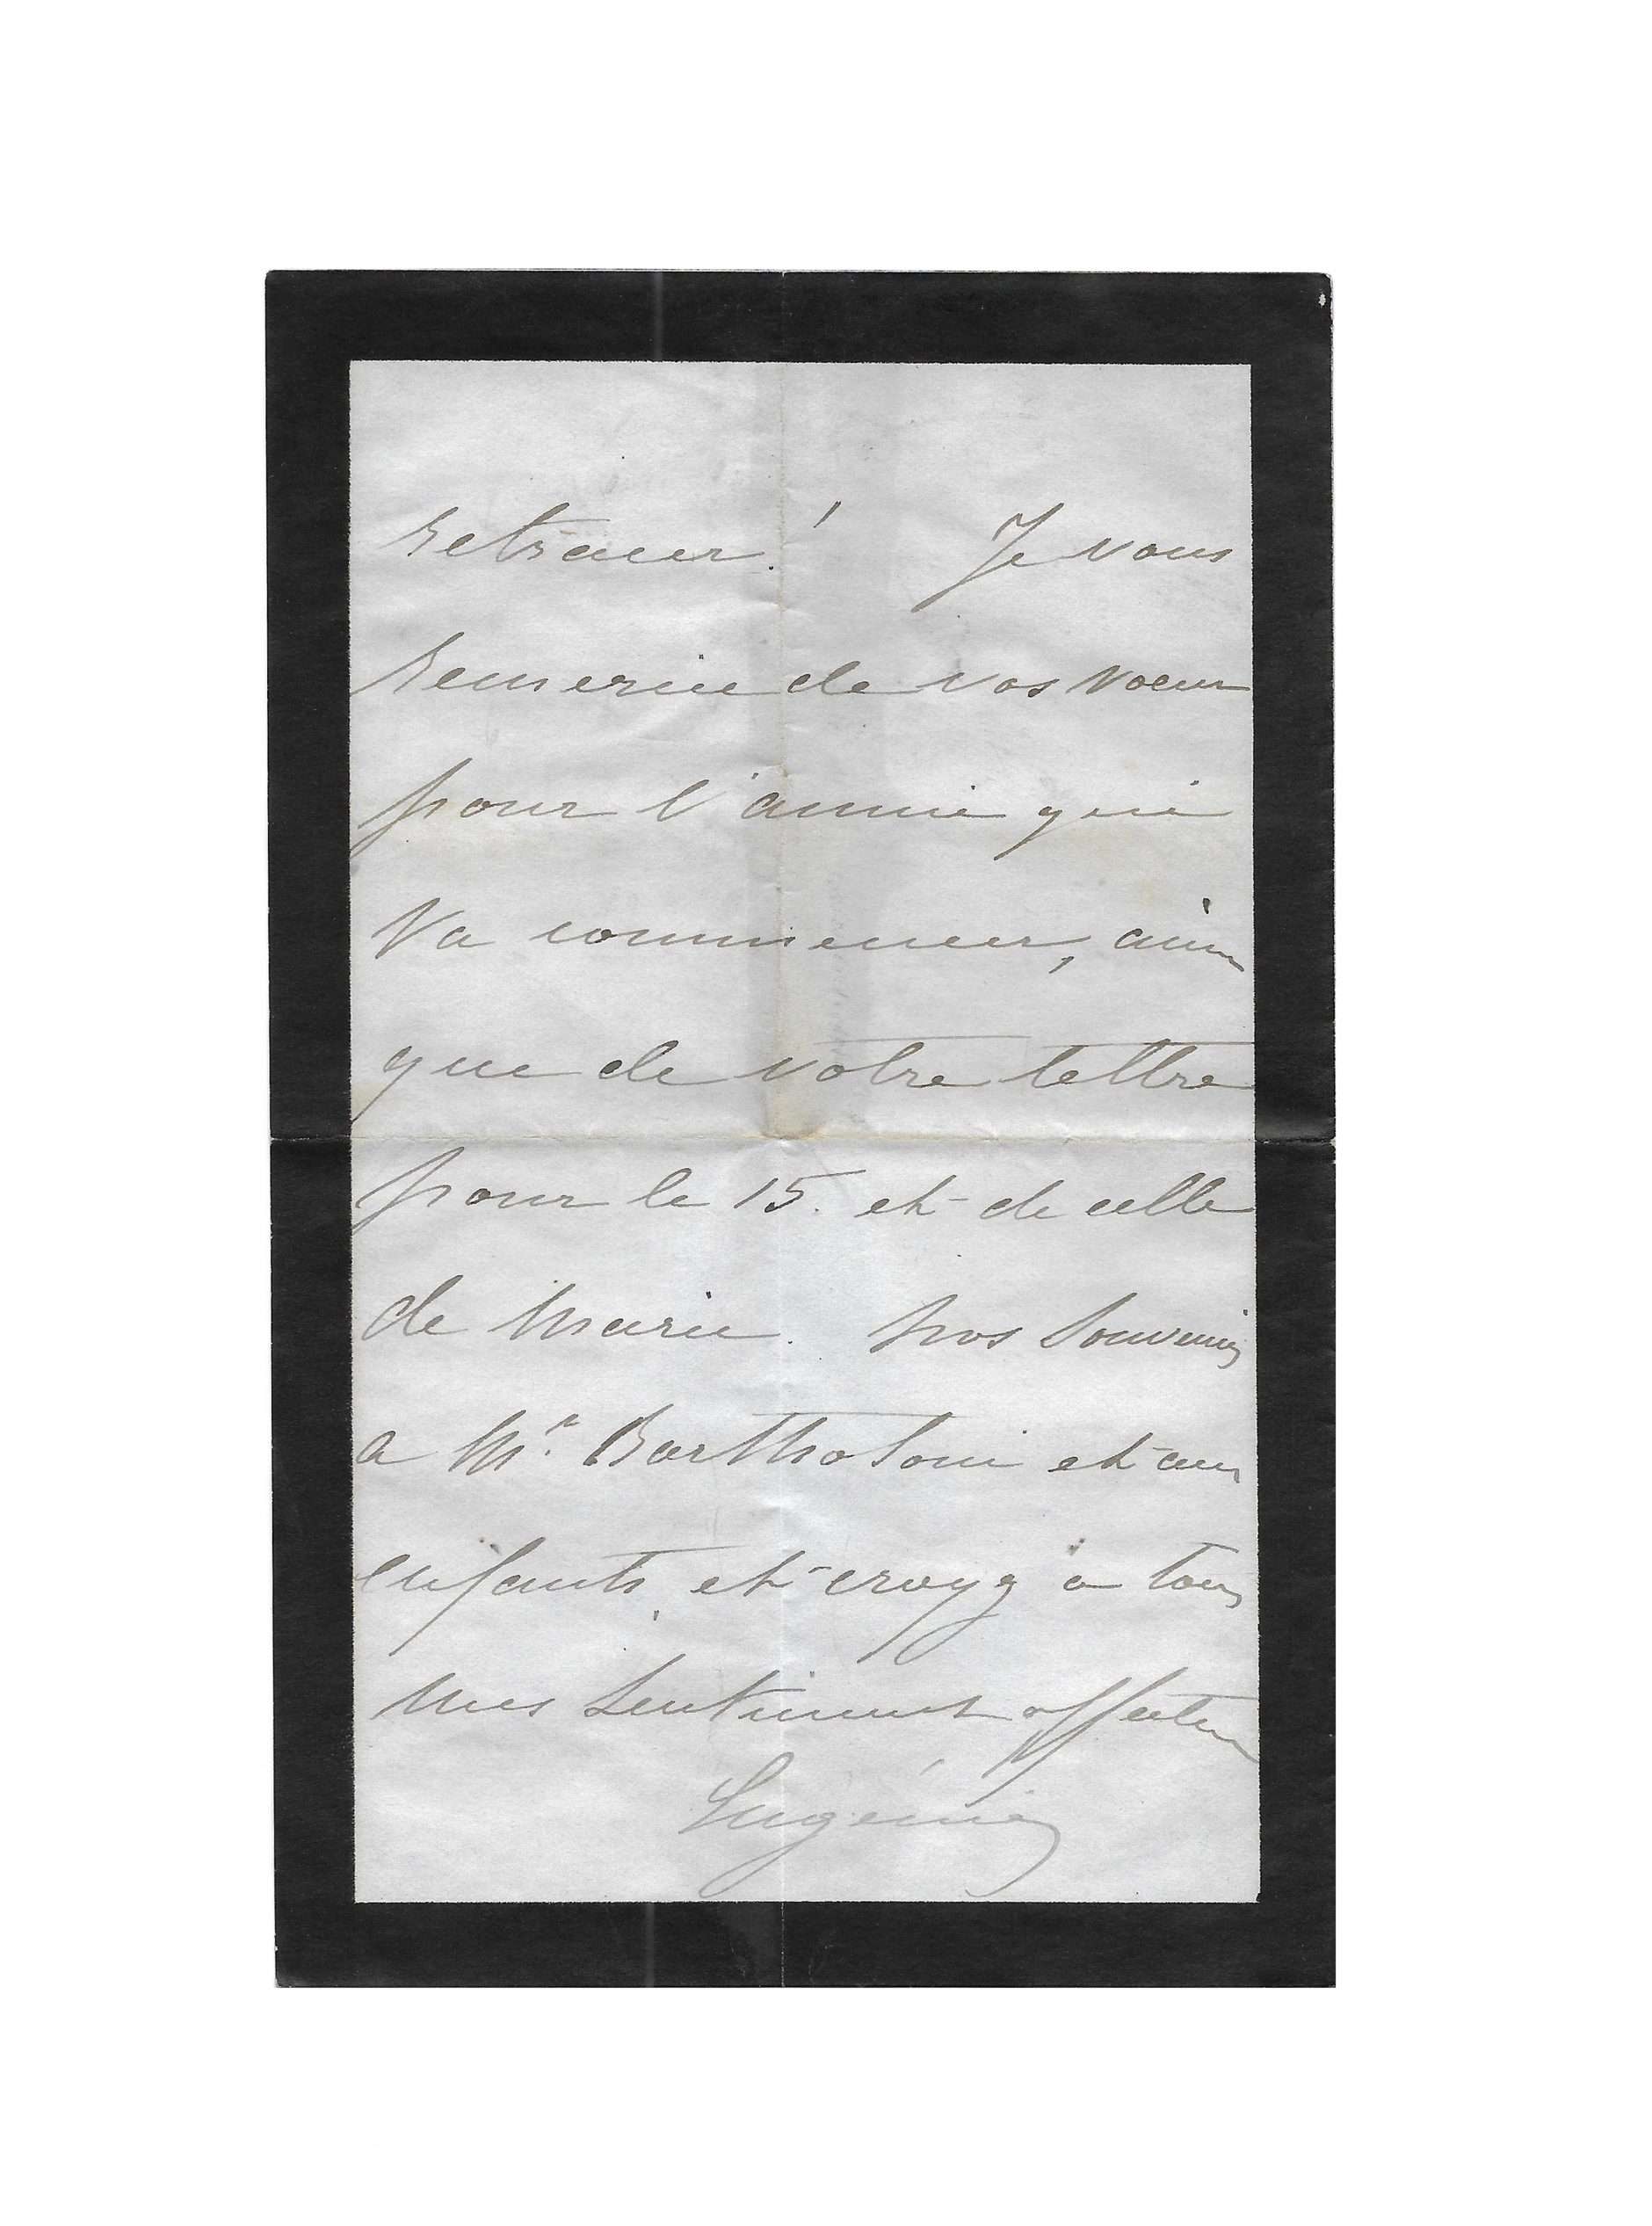 retracer! Je vous
remercie de vos voeux
pour l'année qui
va commencer, ainsi
que de votre lettre
pour le 15. et de celle
de Marie. Nos souvenirs
a Mr. Bartholoni et aux
enfants, et croyez à tous
mes sentiments affectueux
Eugénie